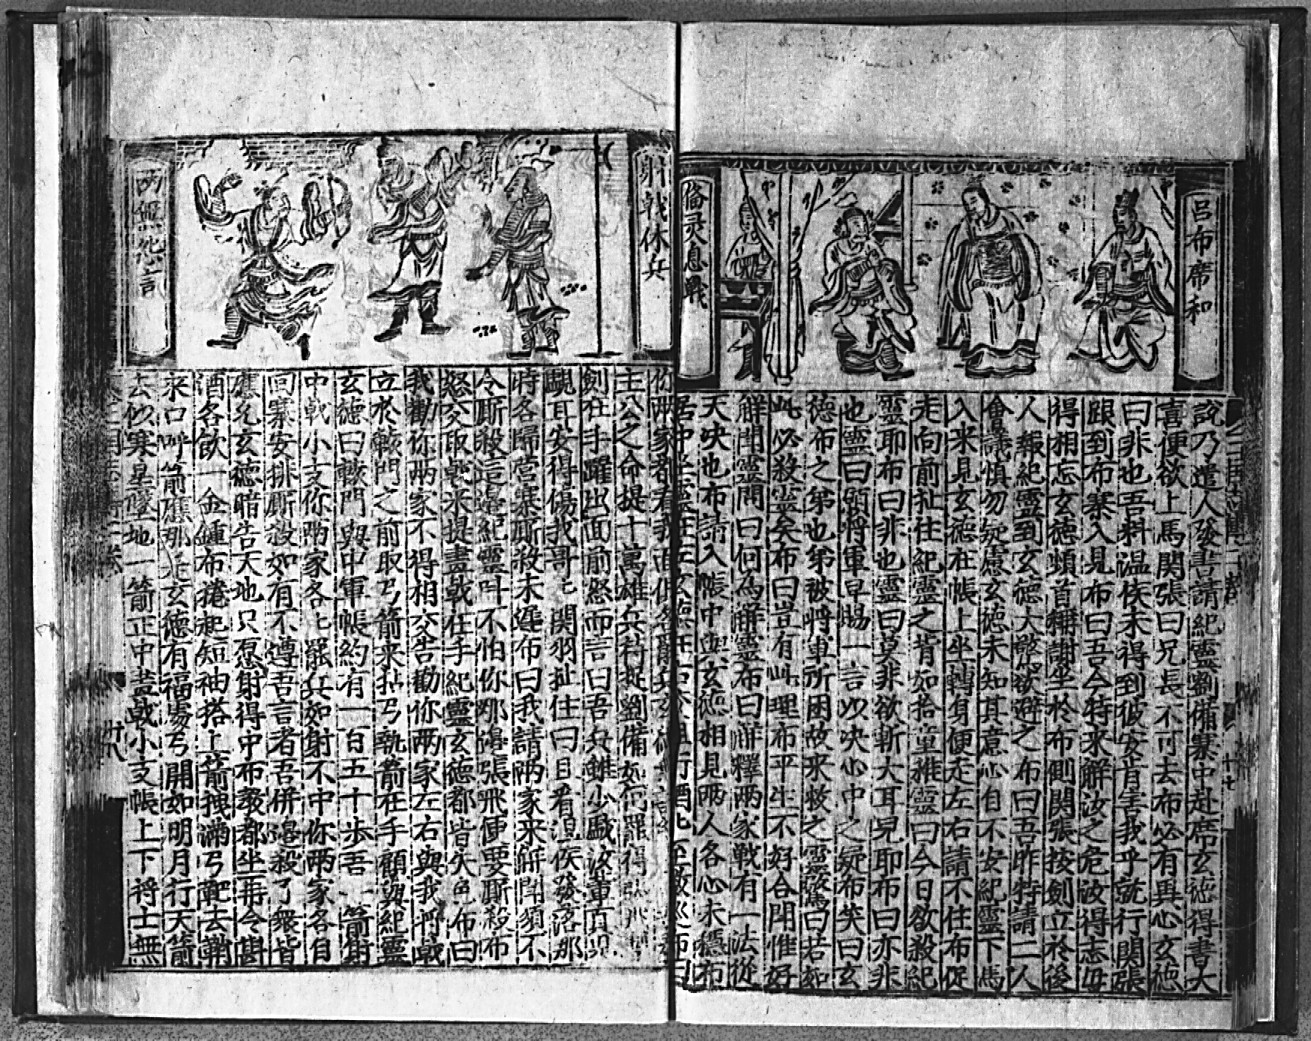 呂布席和
备灵息戰
說乃遣人發書請紀靈劉備寨中赴席玄德得書大
喜便欲上馬関張曰兄長不可去布必有異心玄德
曰非也吾料温侯未得到彼安肯害我乎就行関張
跟到布寨入見布曰吾今特来解汝之危汝得志毋
得相忘玄德頓首稱謝坐於布側関張按劍立於後
人報紀靈到玄德大驚欲避之布曰吾昨特請二人
會議慎勿疑慮玄德未知其意心自不安紀靈下馬
入来見玄德在帳上坐轉身便走左右請不住布促
走向前扯住紀靈之背如拾童稚靈曰今日欲殺紀
靈耶布曰非也靈曰莫非欲斬大耳兒耶布曰亦非
也靈曰願将軍早賜一言以决心中之疑布笑曰玄
德布之弟也弟被將軍所困故来救之靈驚曰若如
此必殺靈矣布曰豈有此理布平生不好合閗惟好
觧閗靈問曰何為觧靈布曰觧釋两家戰有一法從
天决也布請入帳中與玄德相見两人各心未穩布
居中坐靈在左玄德在右行酒布曰
射戟休兵
两無怨言
你两家都看我面俱各罷兵玄德
主公之命提十萬雄兵特捉劉備如何罷得
劍在手躍出面前怒而言曰吾兵雖少覷汝輩百
覷耳安得傷我哥匕関羽扯住曰且看温侯發落那
時各歸營寨厮殺未遲布曰我請两家来觧閗須不
令厮殺這邊紀靈呌不怕你那邊張飛便要厮殺布
怒交取戟来提畫戟在手紀靈玄德都皆失色布曰
我勸你两家不得相交告勸你两家左右與我將戟
立於轅門之前取弓箭来拈弓執箭在手顧與紀靈
玄德曰轅門與中軍帳約有一百五十步吾一箭射
中戟小支你两家各匕罷兵如射不中你两家各自
回寨安排厮殺如有不遵吾言者吾併邊殺了衆皆
應允玄德暗告天地只愿射得中布教都坐再令斟
酒各飲一金鍾布捲起短袖搭上箭拽滿弓靶去鞘
来口呼箭應那是玄德有福塲弓開如明月行天箭
去似寒星墜地一箭正中畫戟小支帳上下将士無